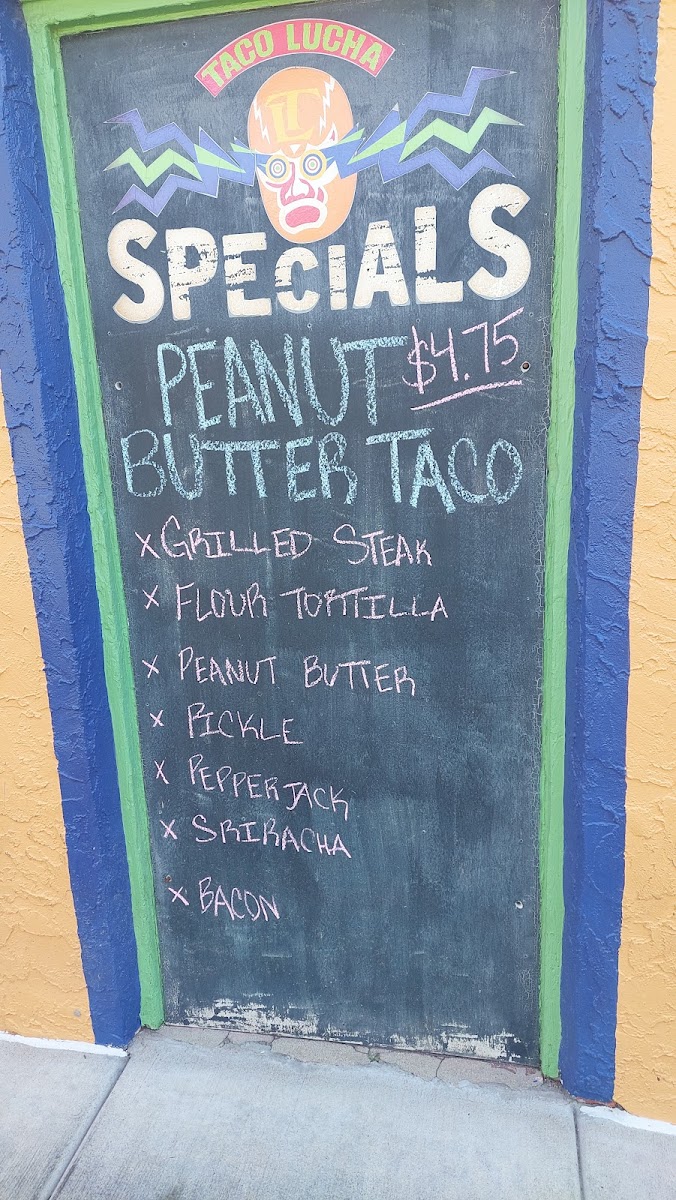 TACO LUCHA
LT
SPECIALS
PEANUT $4.75
BUTTER TACO
x GRILLED STEAK
x FLOUR TORTILLA
x PEANUT BUTTER
x PICKLE
x PEPPERJACK
x SRIRACHA
x BACON